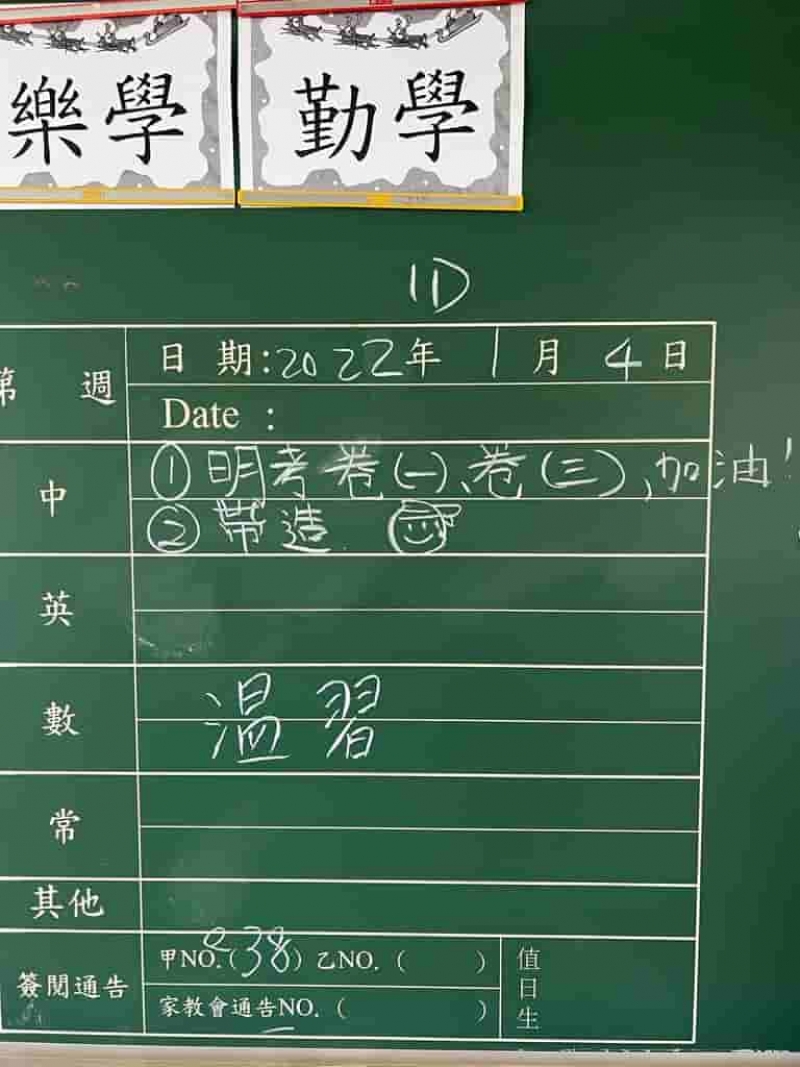 樂學
勤學
1D
第 週
日 期:2022年 1月 4日
Date :
中
①明考卷(一)、卷(三),加油!
②帶造
英
數
溫習
常
其他
簽閱通告
甲NO.(e38) 乙NO.( )
家教會通告NO.( )
值日生